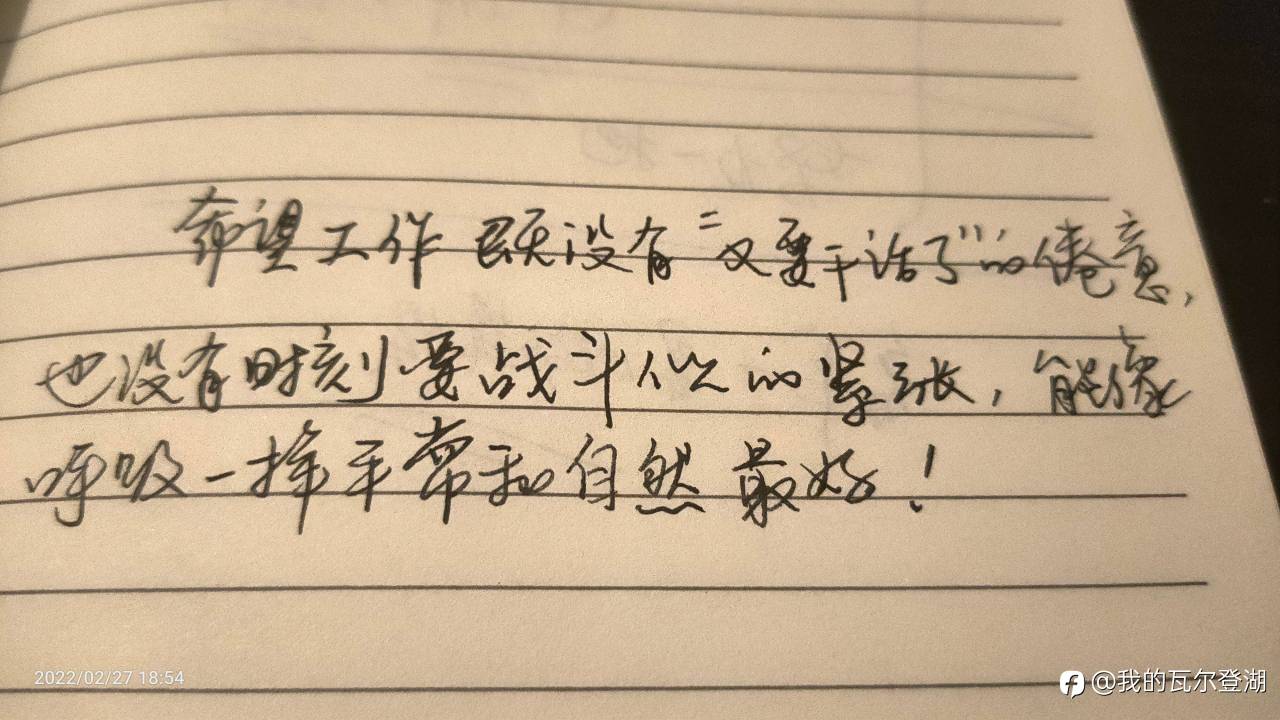 希望工作既没有“又要干活了”的倦意,
也没有时刻要战斗似的紧张,能像
呼吸一样平常和自然最好!
2022/02/27 18:54
@我的瓦尔登湖